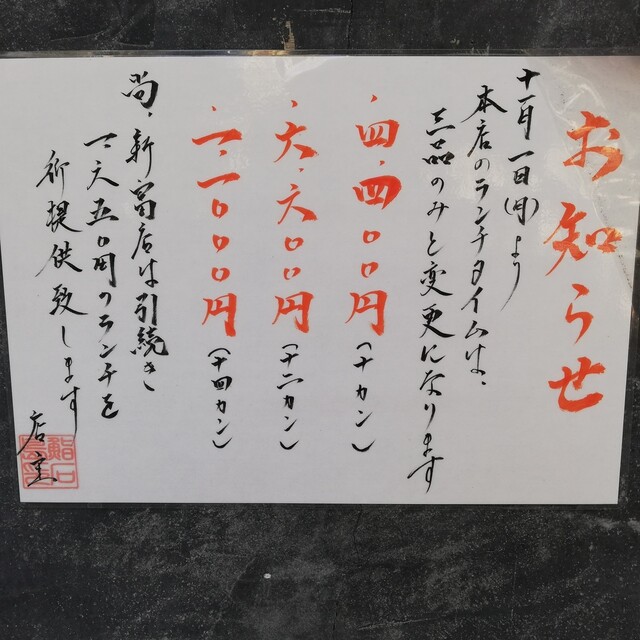 お知らせ
十一月一日(月)より
本店のランチタイムは、
三品のみと変更になります
、四、四〇〇円(十カン)
、六、六〇〇円(十二カン)
、一一〇〇〇円(十四カン)
尚、新富店は引続き
一、六五〇円のランチを
御提供致します
店主